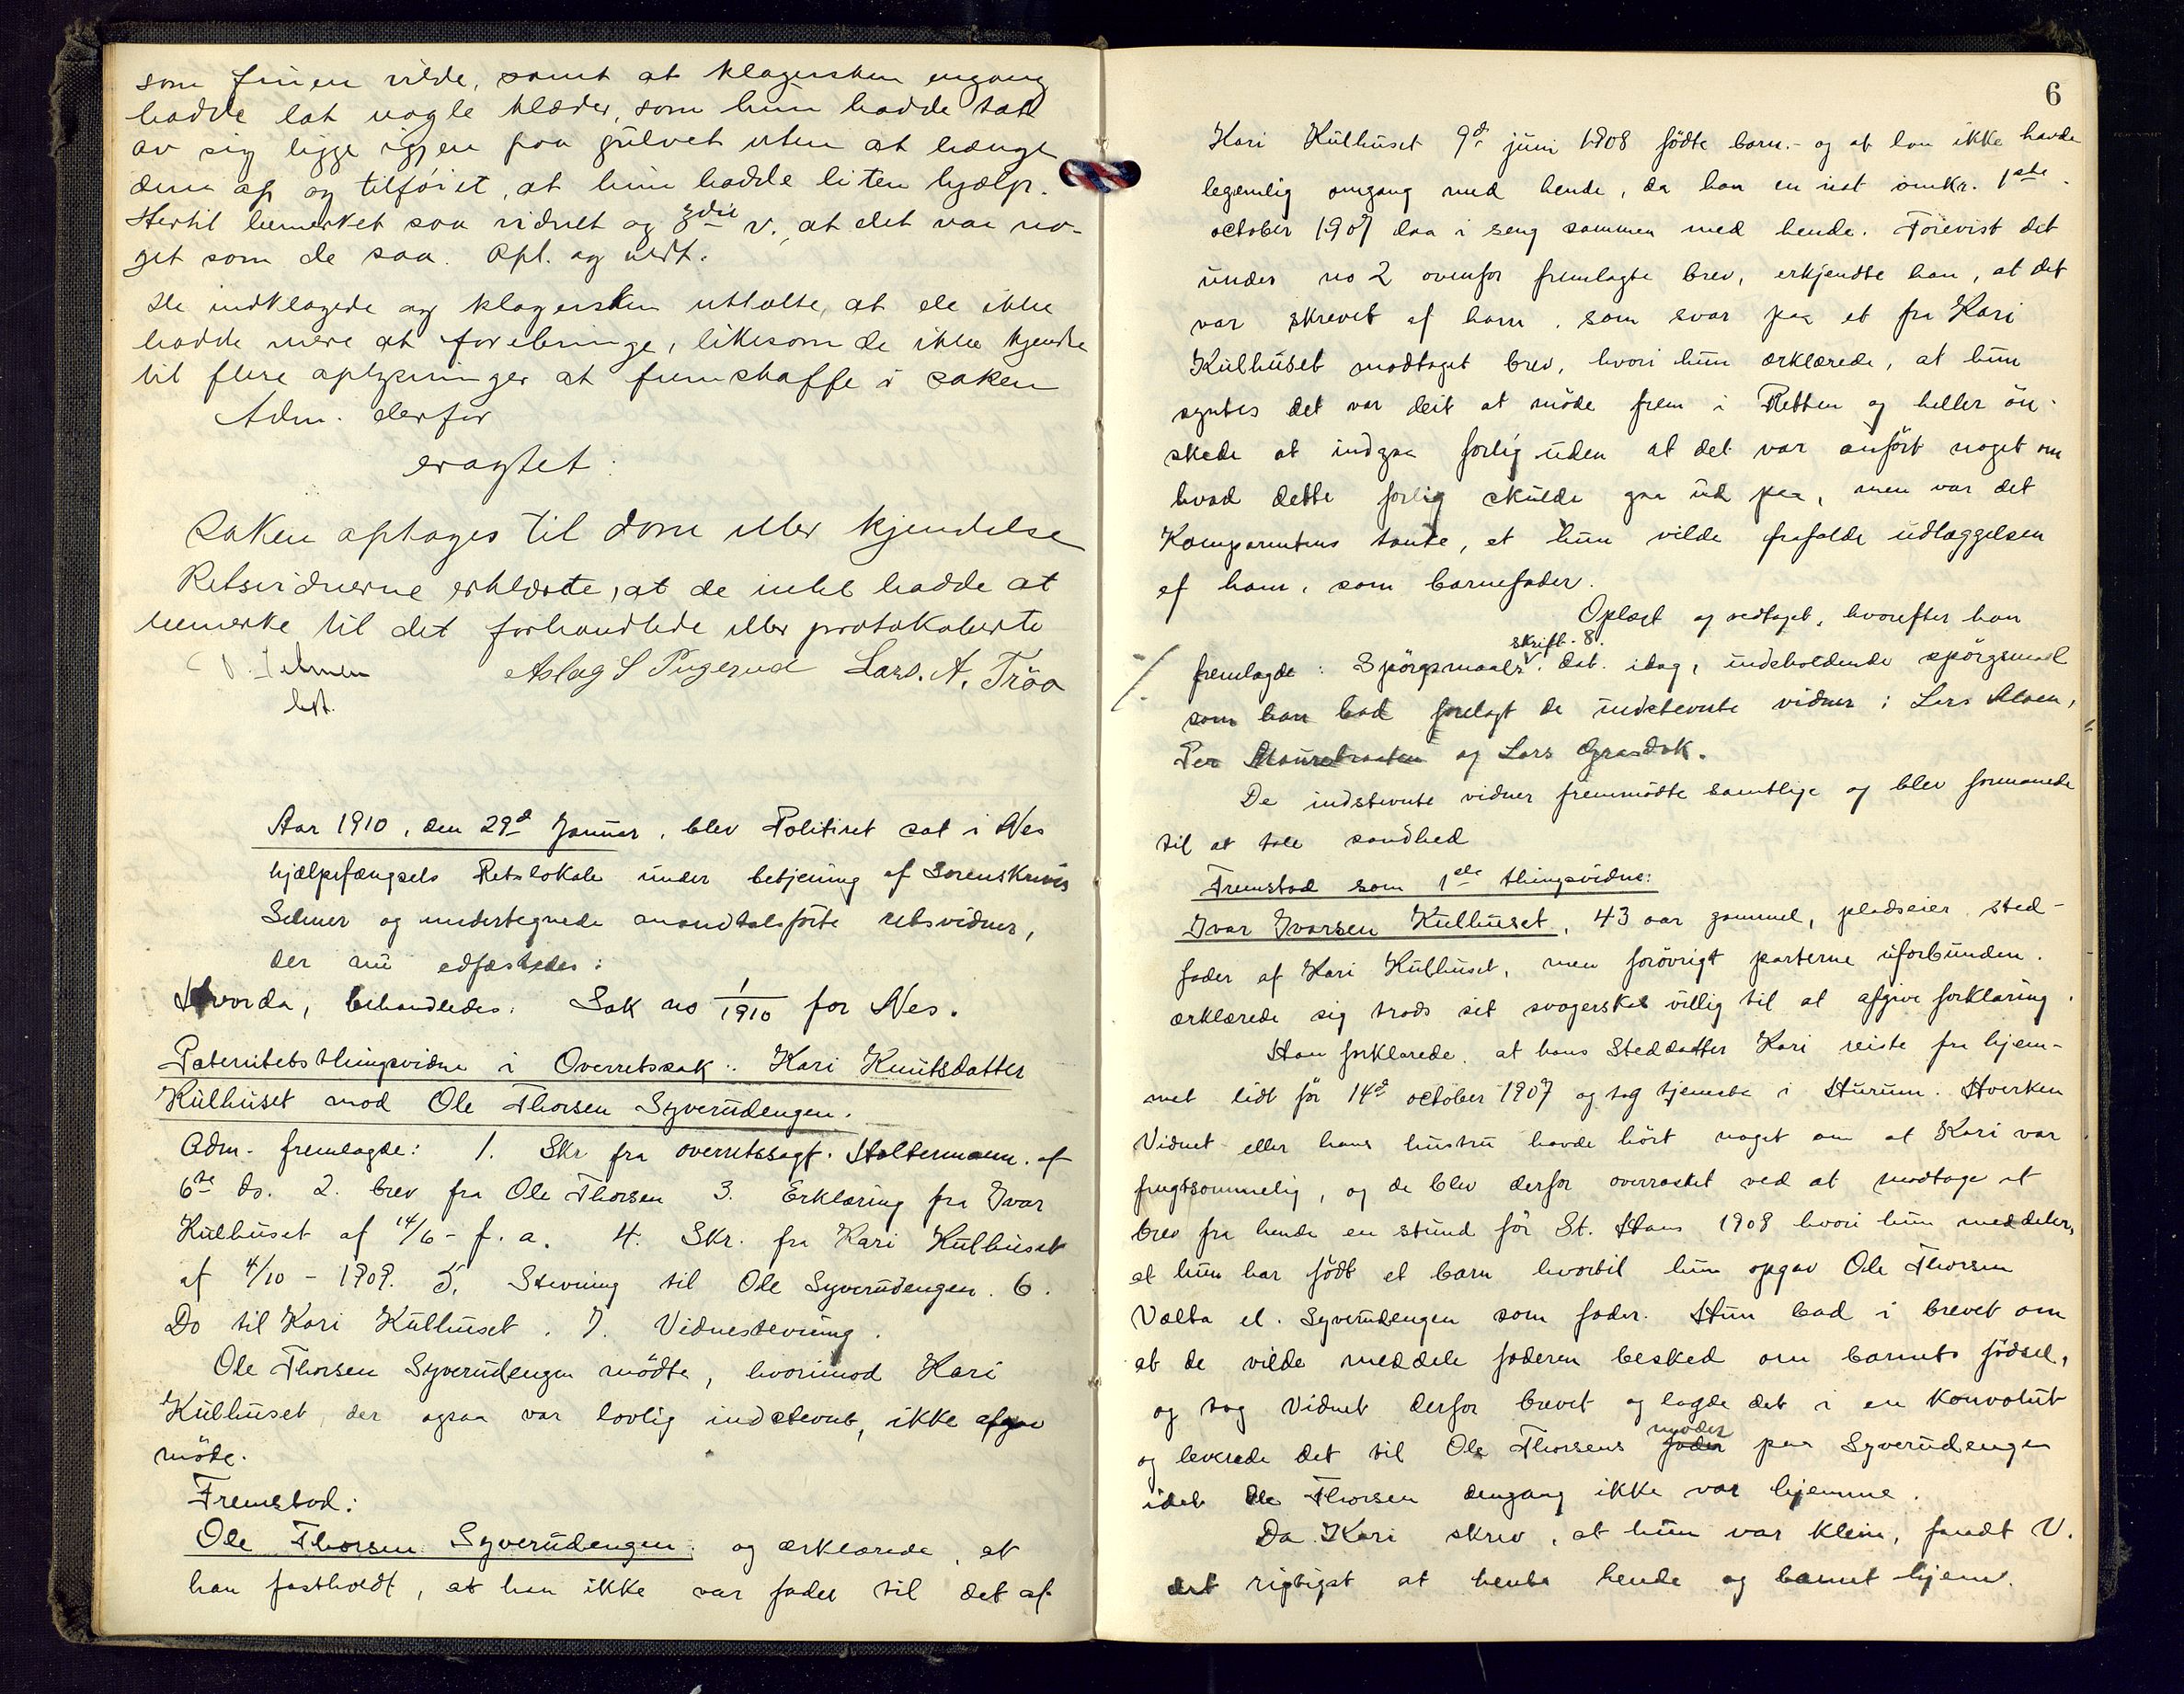 som fruen vilde, samt at klagersken engang
hadde lat nogle klæder, som hun hadde tat
av sig ligge igjen paa gulvet uten at hænge
dem op og tilføiet, at hun hadde liten hjælp.
Hertil bemerket saa vidnet og 3die v., at det var no-
get som de saa. Opl. og vedt.
De indklagede og klagersken uttalte, at de ikke
hadde mere at forebringe, likesom de ikke kjendte
til flere oplysninger at fremskaffe i saken
Adm. derfor
eragtet:
Saken optages til dom eller kjendelse
Retsvidnerne erklærte, at de intet hadde at
bemerke til det forhandlede eller protokolerte
Selmer Aslag S Pugerud Lars. A. Tröo
bst.
Aar 1910, den 29d Januar, blev Politiret sat i Nes
hjælpefængsels Retslokale under betjening af Sorenskriver
Selmer og undertegnede mandtalsförte retsvidner,
der nu edfæstedes:
Hvorda, behandledes: Sak no 1/1910 for Nes.
Paternitets thingsvidne i Overretssak: Kari Knutsdatter
Kulhuset mod Ole Thorsen Syverudengen.
Adm. fremlagde: 1. Skr fra overretssagf. Holtermann. af
6te ds. 2. brev fra Ole Thorsen 3. Erklæring fra Ivar
Kulhuset af 14/6 - f. a. 4. Skr. fra Kari Kulhuset
af 4/10 - 1909. 5. Stevning til Ole Syverudengen. 6.
Do til Kari Kulhuset. 7. Vidnestevning.
Ole Thorsen Syverudengen mödte, hvorimod Kari
Kulhuset, der ogsaa var lovlig indstevnt, ikke afgav
möde.
Fremstod:
Ole Thorsen Syverudengen, og ærklærede, at
han fastholdt, at han ikke var fader til det af
6
Kari Kulhuset 9d juni 1908 födte barn. - og at han ikke havde
legemlig omgang med hende, da han en nat omkr. 1ste
october 1907 laa i seng sammen med hende. Forevist det
under no 2 ovenfor fremlagte brev, erkjendte han, at det
var skrevet af ham, som svar paa et fra Kari
Kulhuset modtaget brev, hvori hun ærklærede, at hun
syntes det var leit at möde frem i Retten og heller ön-
skede at indgaa forlig uden at det var anfört noget om
hvad dette forlig skulde gaa ud paa, men var det
Komparentens tanke, at hun vilde frafalde udlæggelsen
af ham, som barnefader.
Oplæst og vedtaget, hvorefter han
fremlagde: Spörgsmaals skrift. 8. dat. idag, indeholdende spörgsmaal
som han bad forelagt de indstevnte vidner: Lars Moen,
Per Maurebraaten og Lars Grasdok.
De indstevnte vidner fremmödte samtlige og blev formanede
til at tale sandhed
Fremstod som 1ste thingsvidne:
Ivar Ivarsen Kulhuset, 43 aar gammel, pladseier sted-
fader af Kari Kulhuset, men forövrigt parterne uforbunden.
ærklærede sig trods sit svogerskab villig til at afgive forklaring.
Han forklarede, at hans Steddatter Kari reiste fra hjem-
met lidt för 14d october 1907 og tog tjeneste i Hurum. Hverken
Vidnet eller hans hustru havde hört noget om at Kari var
frugtsommelig, og de blev derfor overrasket ved at modtage et
brev fra hende en stund för St. Hans 1908 hvori hun meddeler,
at hun har födt et barn hvortil hun opgav Ole Thorsen
Volta el. Syverudengen som fader. Hun bad i brevet om
at de vilde meddele faderen besked om barnets födsel,
og tog Vidnet derfor brevet og lagde det i en konvolut
og leverede det til Ole Thorsens fader moder paa Syverudengen
idet Ole Thorsen dengang ikke var hjemme.
Da Kari skrev, at hun var klein, fandt V.
det rigtigst at hente hende og barnet hjem.